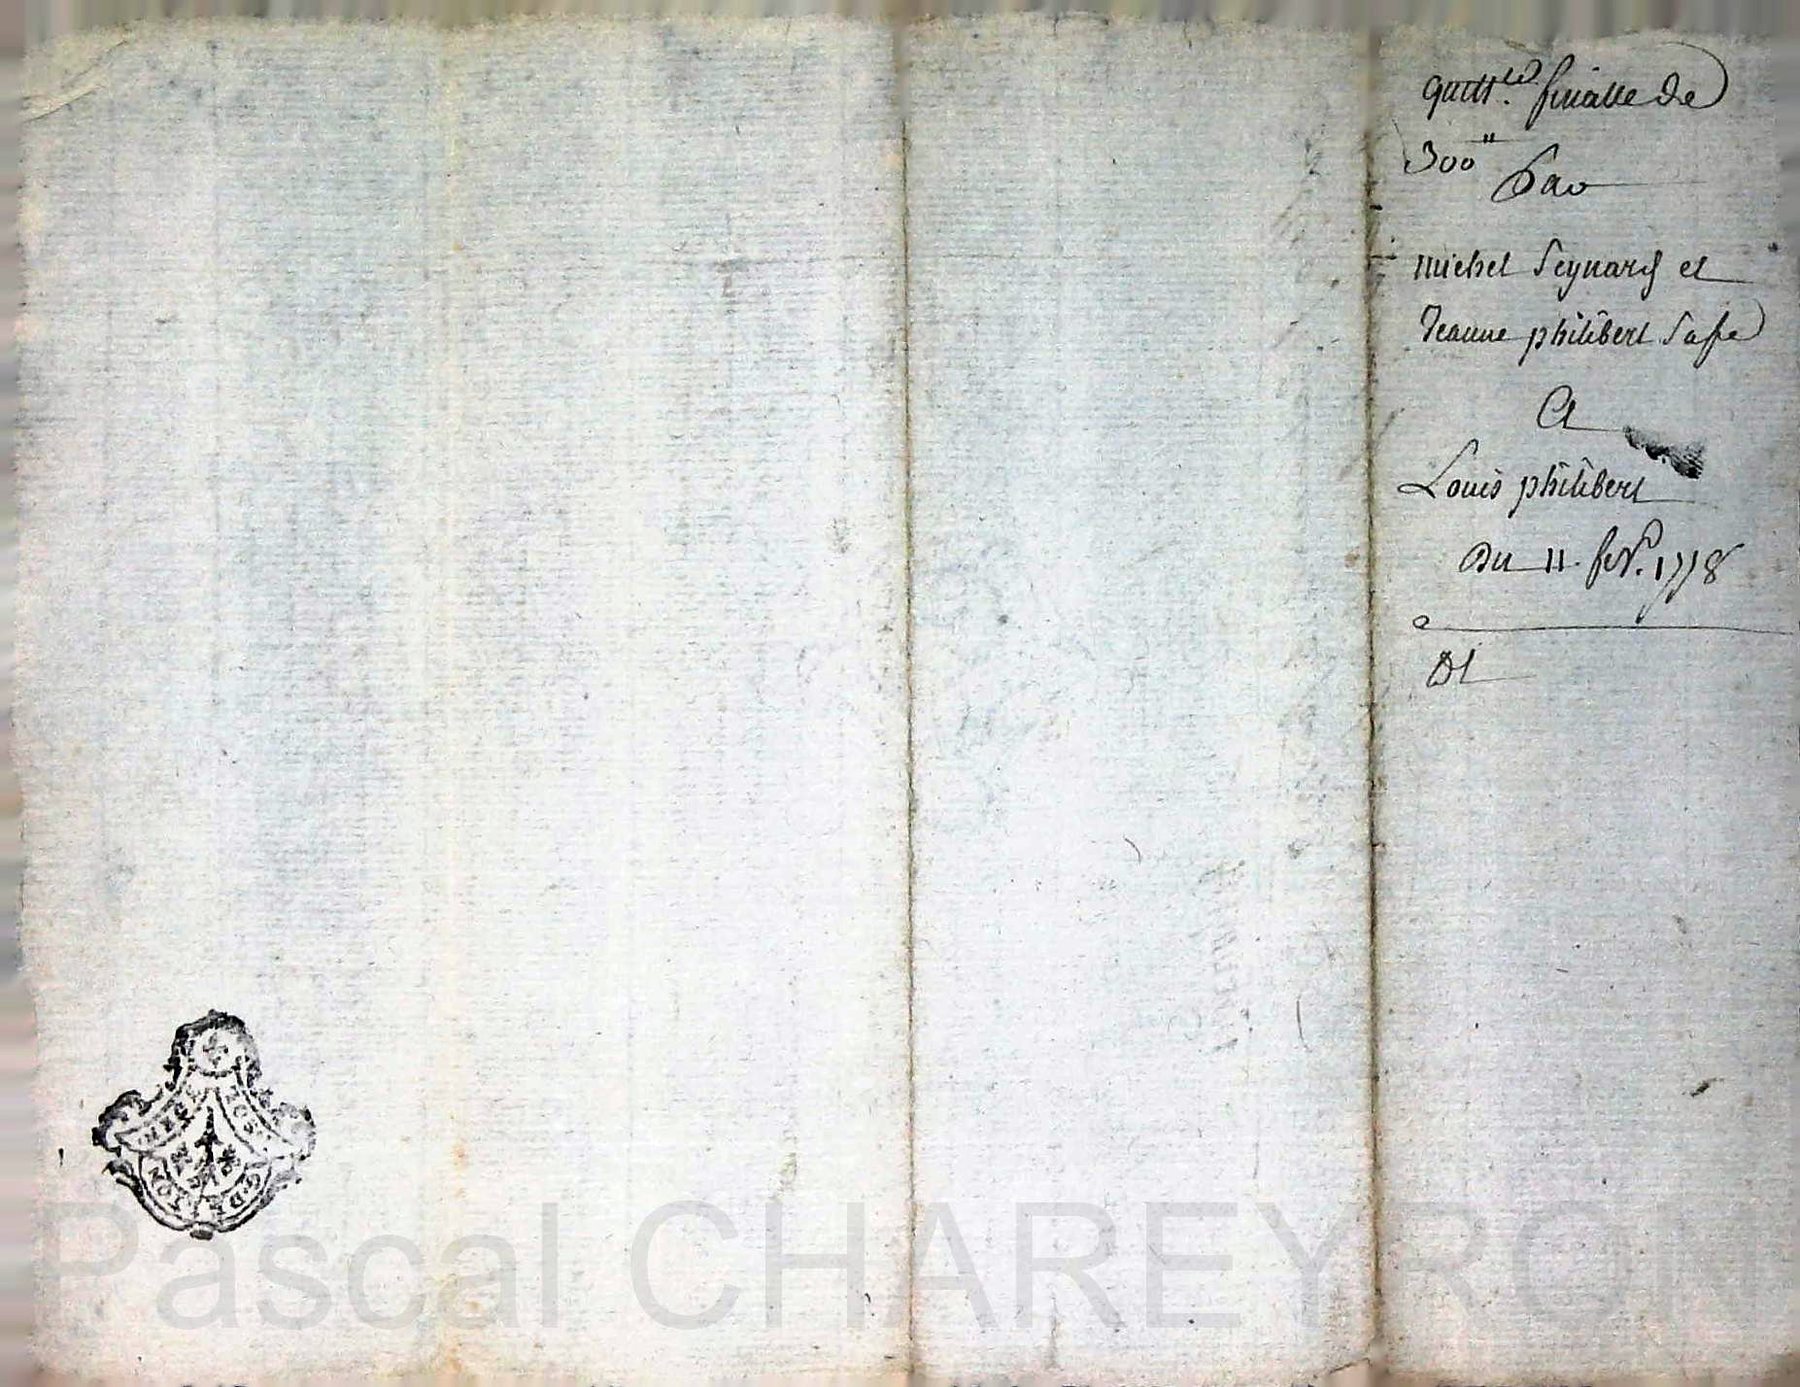 quitt.ce finalle de
300"
Par
michel Seynard et
Jeanne philibert Safe
A
Louis philibert
Du 11. fév. 1778
DL
G. DE
TION
Pascal CHAREYRON